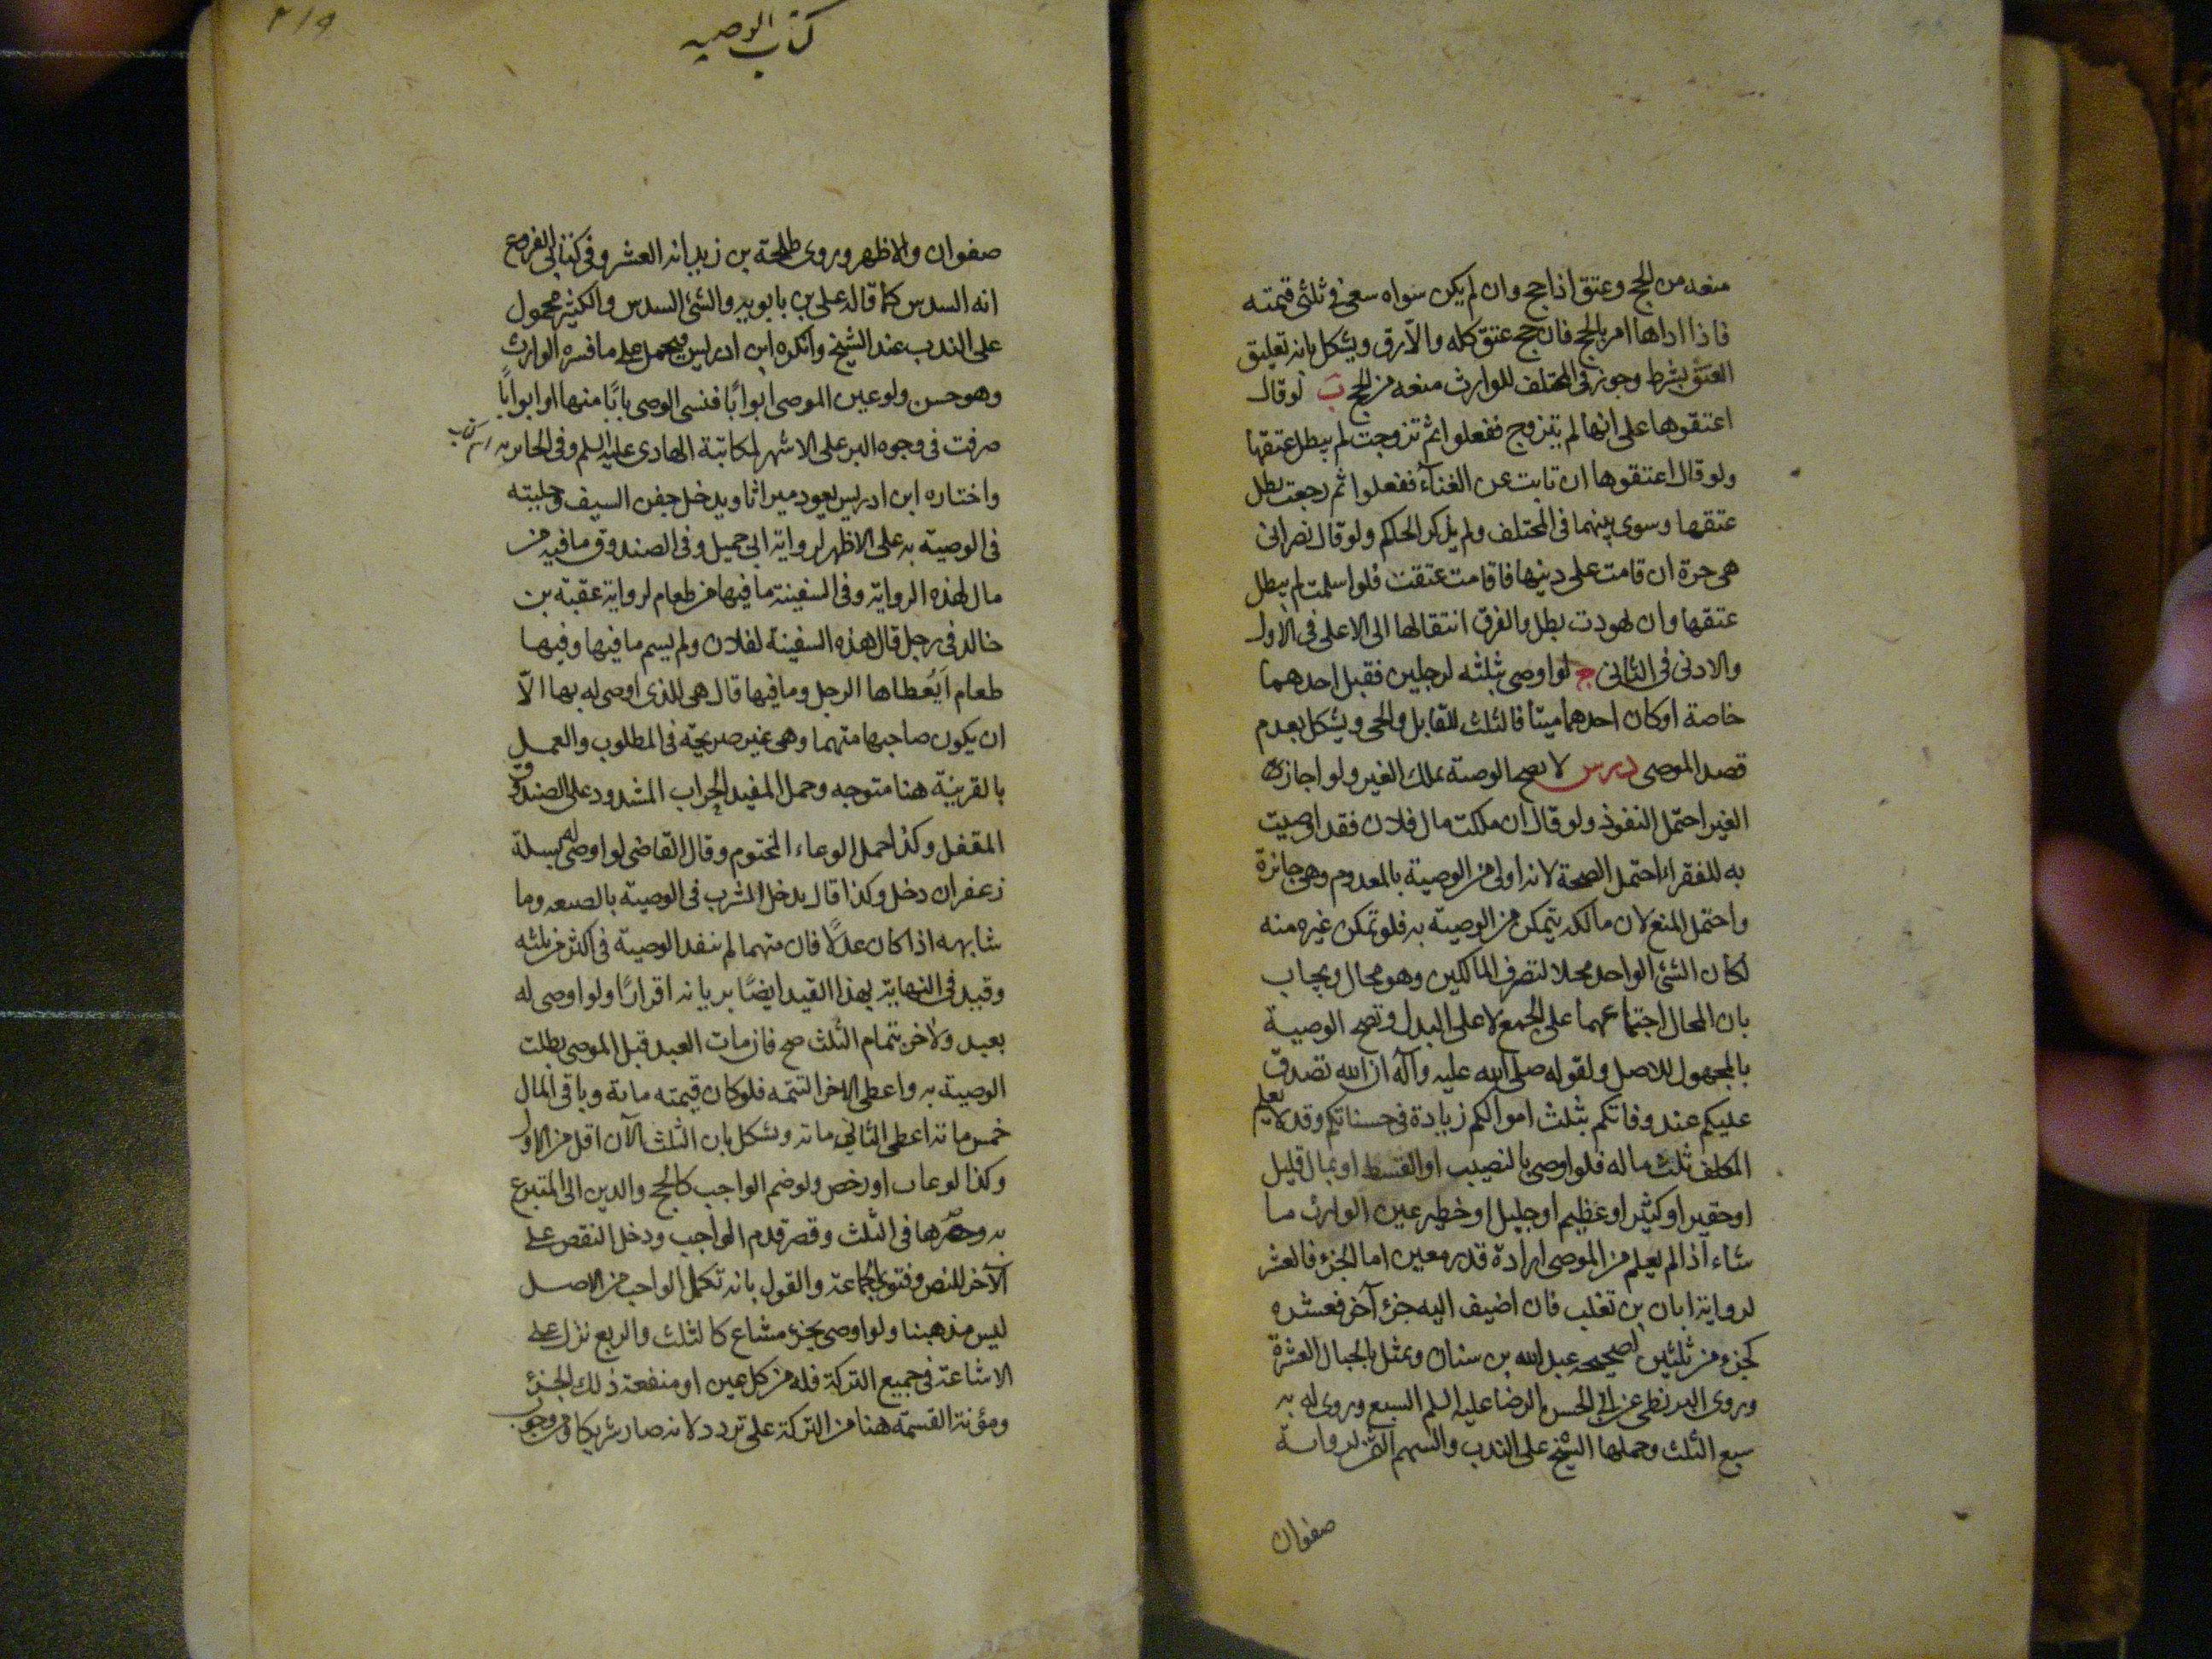 منعه من الحج وعتق اذا حج وان لم يكن سواه سعى في ثلثى قيمته
فاذا اداها امر بالحج فان حج عتق كله والا رق ويشكل بانه تعليق
العتق بشرط وجوز في المختلف للوارث منعه من الحج ب لو قال
اعتقوها على انها لم تتزوج ففعلوا ثم تزوجت لم يبطل عتقها
ولو قال اعتقوها ان تابت عن الغناء ففعلوا ثم رجعت بطل
عتقها وسوى بينهما في المختلف ولم يذكر الحكم ولو قال نصرانى
هى حرة ان قامت على دينها فاقامت عتقت فلو اسلمت لم يبطل
عتقها وان تهودت بطل والفرق انتقالها الى الاعلى في الاول
والادنى في الثانى ج لو اوصى بثلثه لرجلين فقبل احدهما
خاصة او كان احدهما ميتا فالثلث للقابل والحى ويشكل بعدم
قصد الموصى درس لا يصح الوصية بملك الغير ولو اجازه
الغير احتمل النفوذ ولو قال ان ملكت مال فلان فقد اوصيت
به للفقراء احتمل الصحة لانه اولى من الوصية بالمعدوم وهى جائزة
واحتمل المنع لان مالكه يتمكن من الوصية به فلو تمكن غيره منه
لكان الشئ الواحد محلا لتصرف المالكين وهو محال ويجاب
بان المحال اجتماعهما على الجمع لا على البدل وتصح الوصية
بالمجهول للاصل ولقوله صلى الله عليه وآله ان الله تصدق
عليكم عند وفاتكم بثلث اموالكم زيادة في حسناتكم وقد لا يعلم
المكلف ثلث ماله فلو اوصى بالنصيب او القسط او بمال قليل
او حقير او كثير او عظيم او جليل او خطير عين الوارث ما
شاء اذا لم يعلم من الموصى ارادة قدر معين اما الجزء فالعشر
لرواية ابان بن تغلب فان اضيف اليه جزء آخر فعشره
كجزء من ثلثين لصحيحة عبد الله بن سنان وتمثل بالجبال العشرة
وروى البزنطى عن ابى الحسن الرضا عليه السلم السبع وروى له به
سبع الثلث وحملها الشيخ على الندب والسهم الثمن لرواية
صفوان
كتاب الوصيه
٢١٩
صفوان والاظهر وروى طلحة بن زيد انه العشر وفي كتابى الفروع
انه السدس كما قاله على بن بابويه والشئ السدس والكثير محمول
على الندب عند الشيخ وانكره ابن ادريس فيحمل على ما فسره الوارث
وهو حسن ولو عين الموصى ابوابا فنسى الوصى بابا منها او ابوابا
صرفت في وجوه البر على الاشهر لمكاتبة الهادى عليه السلم وفي الحائريه
واختاره ابن ادريس يعود ميراثا ويدخل جفن السيف وحليته
في الوصية به على الاظهر لرواية ابى جميل وفي الصندوق ما فيه من
مال لهذه الرواية وفي السفينة ما فيها من طعام لرواية عقبة بن
خالد في رجل قال هذه السفينة لفلان ولم يسم ما فيها وفيها
طعام ايعطاها الرجل وما فيها قال هى للذى اوصى له بها الا
ان يكون صاحبها متهما وهى غير صريحة في المطلوب والعمل
بالقرينة هنا متوجه وحمل المفيد الجراب المشدود على الصندوق
المقفل وكذا حمل الوعاء المختوم وقال القاضى لو اوصى له بسلة
زعفران دخل وكذا قال يدخل الشرب في الوصية بالضيعه وما
شابهه اذا كان عدلا فان متهما لم ينفذ الوصية في اكثر من ثلثه
وقيد في النهاية بهذا القيد ايضا يريانه اقرارا ولو اوصى له
بعبد ولآخر بتمام الثلث صح فان مات العبد قبل الموصى بطلت
الوصية به واعطى الاخر التتمه فلو كان قيمته مائة وباقى المال
خمس مائة اعطى الثانى مائة ويشكل بان الثلث الآن اقل من الاول
وكذا لو عاب او رخص ولو ضم الواجب كالحج والدين الى المتبرع
به وحصرها في الثلث وقصر قدم الواجب ودخل النقص على
الآخر للنص وفتوى الجماعة والقول بانه تكمل الواجب من الاصل
ليس مذهبنا ولو اوصى بجزء مشاع كالثلث والربع نزل على
الاشاعة في جميع التركة فله من كل عين او منفعة ذلك الجزء
ومؤنة القسمة هنا من التركة على تردد لانه صار شريكا ومن وجوب